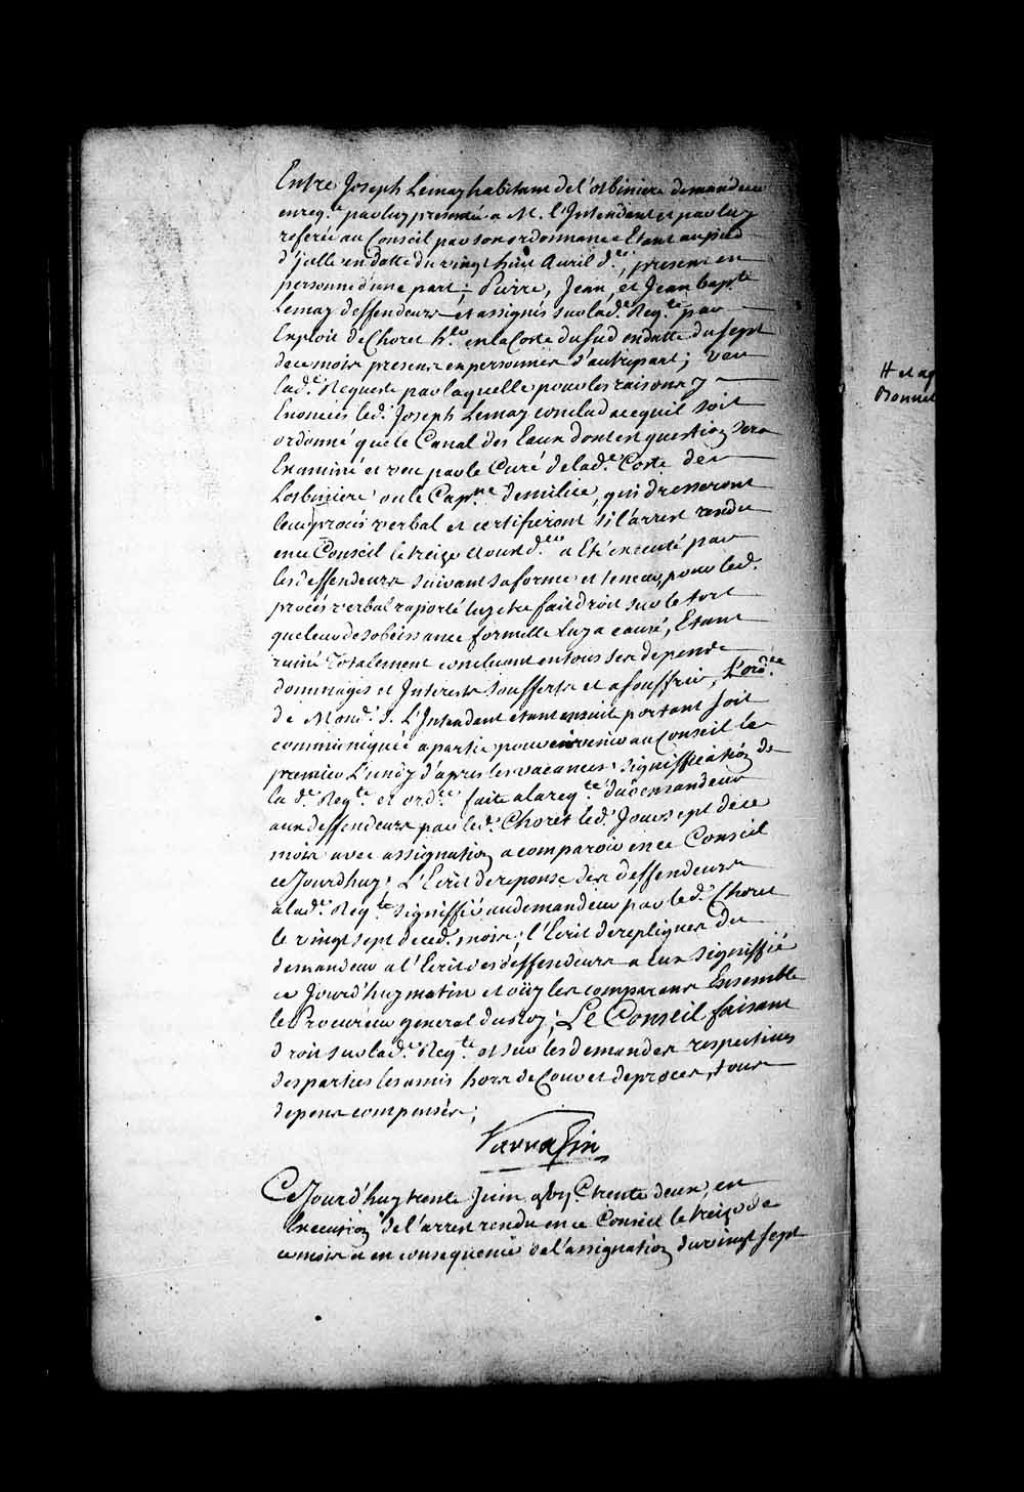 Entre Joseph Lemay habitant de l'otbiniere demandeur
en req.te par luy presentée a M. l'Intendant et par luy
referée au Conseil par son ordonnance Etant au pied
d'jcelle en datte du vingt huit Avril d.er, present en
personne d'une part; Pierre, Jean, et Jean bap.te
Lemay deffendeurs et assignés sur lad.e Req.te par
Exploit de Choret h.er en la Coste du Sud en datte du sept
de ce mois presens en personnes d'autre part; Veu
lad.e Requeste par laquelle pour les raisons y
Enoncées led. Joseph Lemay conclud a ce quil soit
ordonné que le Canal des Eaux dont est question sera
Examiné et veu par le Curé de lad.e Coste de
Lotbiniere ou le Cap.ne de milice, qui dresseront
leur procés verbal et certifieront si l'arrest rendu
en ce Conseil le treize Aoust d.er a Eté executé par
les deffendeurs suivant sa forme et teneur, pour led.
procés verbal raporté luy etre fait droit sur le tort
que leur desobeissance formelle luy a causé, Etant
ruiné Totalement concluant en tous ses depens
dommages et Interests soufferts et a souffrir, L'ord.ce
de Mond. S. L'Intendant etant ensuit portant soit
communiquée a partie pour en venir au Conseil le
premier Lundy d'apres les vacances; signiffication de
la d.e Req.te et ord.ce faite a la req.te du demandeur
aux deffendeurs par led. Choret led. Jour sept de ce
mois avec assignation a comparoir en ce Conseil
ce Jourd'huy; L'Ecrit de reponse des deffendeurs
a lad.e Req.te signiffié au demandeur par led. Choret
le vingt sept de ced. mois; l'Ecrit de repliques du
demandeur a l'Ecrit des deffendeurs a eux signiffié
ce Jourd'huy matin et oüy les comparans Ensemble
le Procureur general du Roy; Le Conseil faisant
droit sur lad.e Req.te et sur les demandes respectives
des parties les a mis hors de Cour et de procés, tous
depens compensés;
Varrasin
Ce Jourd'huy trente Juin trente deux, en
Execution de l'arrest rendu en ce Conseil le treize de
ce mois et en consequence de l'assignation du vingt sept
H et